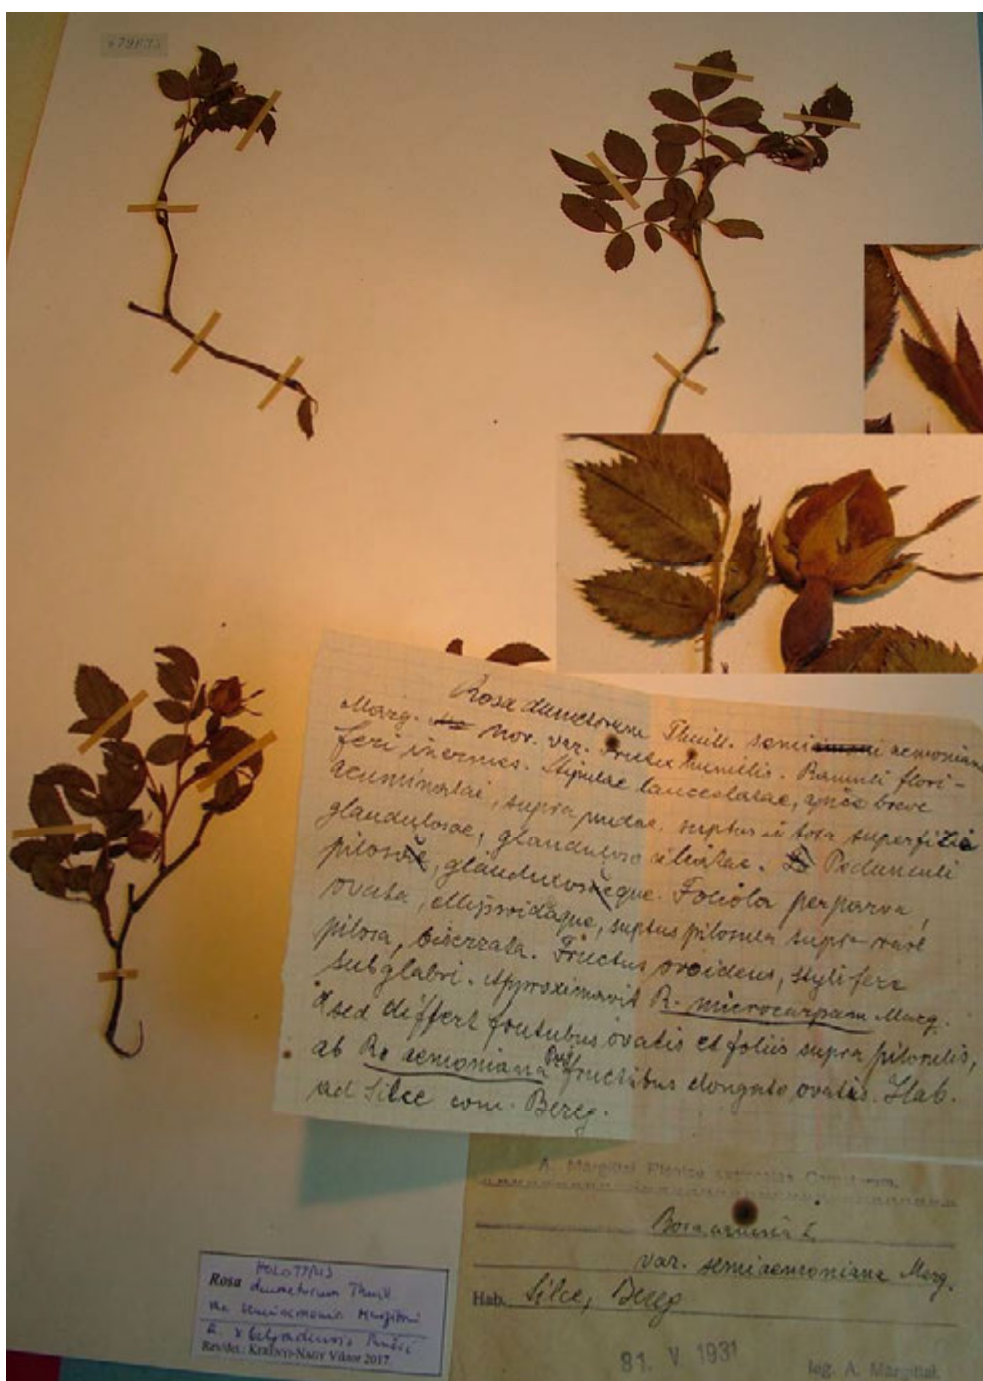 Rosa dumetorum Thuill. semi aemoniana
Marg. Nov. var. Frutex humilis. Ramuli flori-
feri inermes. Stipulae lanceolatae, apice breve
acuminatae, supra nudae, suptus in tota superficie
glandulosae, glanduloso ciliatae. Pedunculi
pilosi, glandulosique. Foliola perparva,
ovata, ellipsoidaque, suptus pilosula supra rare
pilosa, biserrata. Fructus ovoideus, styli fere
subglabri. Approximavit R. microcarpam Marg.
sed differt fructubus ovatis et foliis supra pilosulis,
ab R. aemoniana fructibus elongato ovatis. Hab.
ad Silce com. Bereg.
A. Margittai Plantae exsiccatae
var. semiaemoniana Marg.
Hab. Silce, Bereg
31. V. 1931
leg. A. Margittai.
HOLOTYPUS
Rosa dumetorum Thuill.
var. semiaemoniana Margittai
R. x belgradensis Pančić
Rev/det.: KERÉNYI-NAGY Viktor 2017.